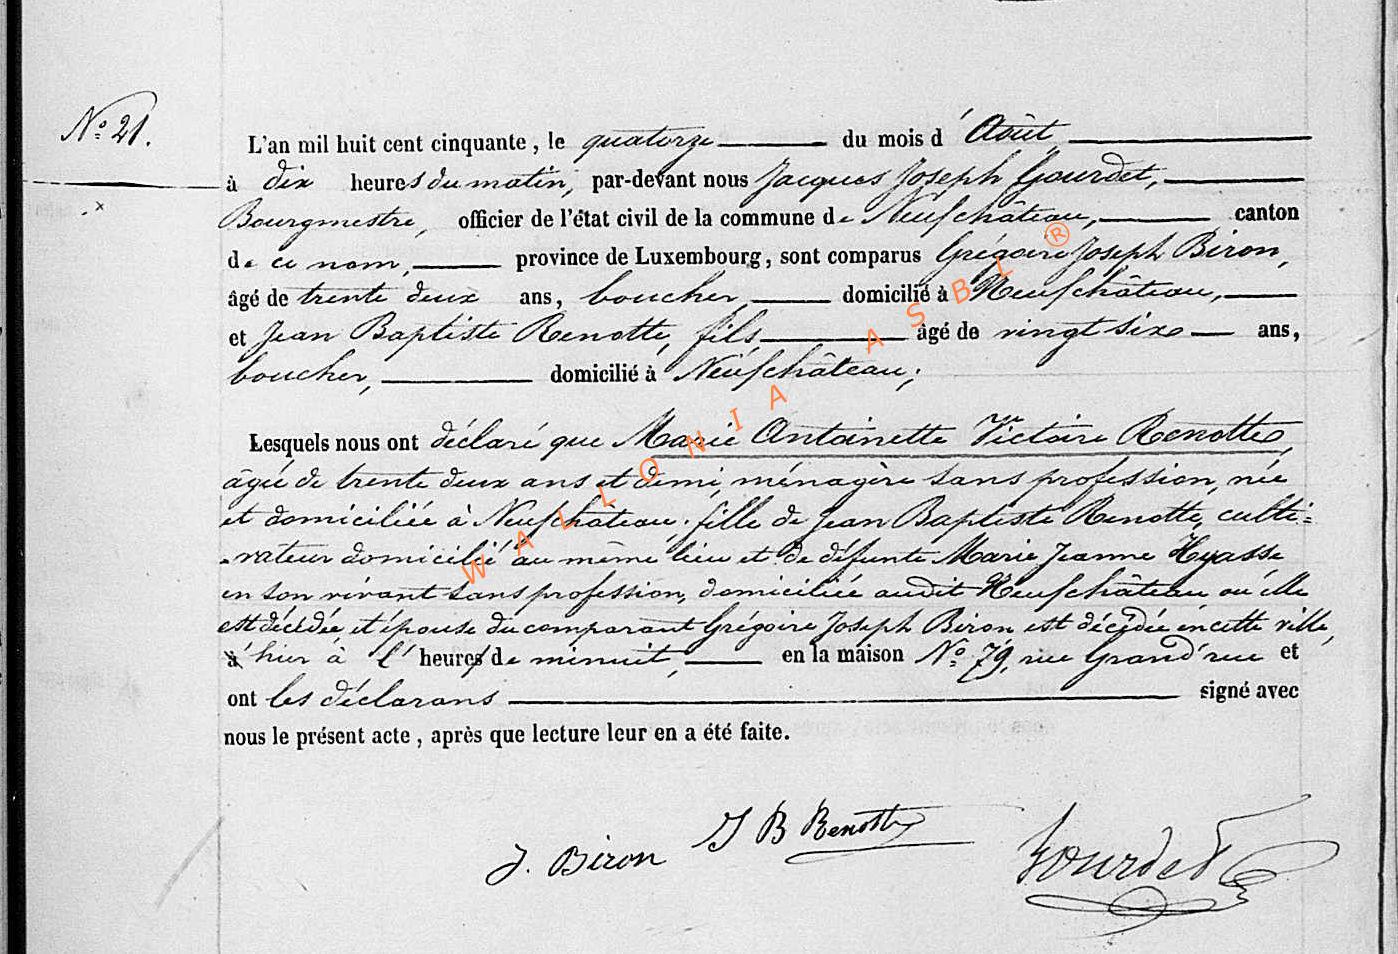 N.o 21.
L'an mil huit cent cinquante, le quatorze du mois d'Août
à dix heures du matin, par-devant nous Jacques Joseph Gourdet,
Bourgmestre, officier de l'état civil de la commune de Neufchâteau, canton
de ce nom, province de Luxembourg, sont comparus Grégoire Joseph Biron,
âgé de trente deux ans, boucher, domicilié à Neufchâteau,
et Jean Baptiste Renotte, fils, âgé de vingt six ans,
boucher, domicilié à Neufchâteau;
Lesquels nous ont déclaré que Marie Antoinette Victoire Renotte,
âgée de trente deux ans et demi, ménagère sans profession, née
et domiciliée à Neufchâteau, fille de Jean Baptiste Renotte, culti=
-vateur domicilié au même lieu et de défunte Marie Jeanne Hyasse
en son vivant sans profession, domiciliée audit Neufchâteau où elle
est décédée, et épouse du comparant Grégoire Joseph Biron est décédée en cette ville,
à hier à l'heure de minuit, en la maison N.o 79, rue Grand'rue et
ont les déclarans signé avec
nous le présent acte, après que lecture leur en a été faite.
J. Biron J B Renotte Gourdet
WALLONIA ASBL ®